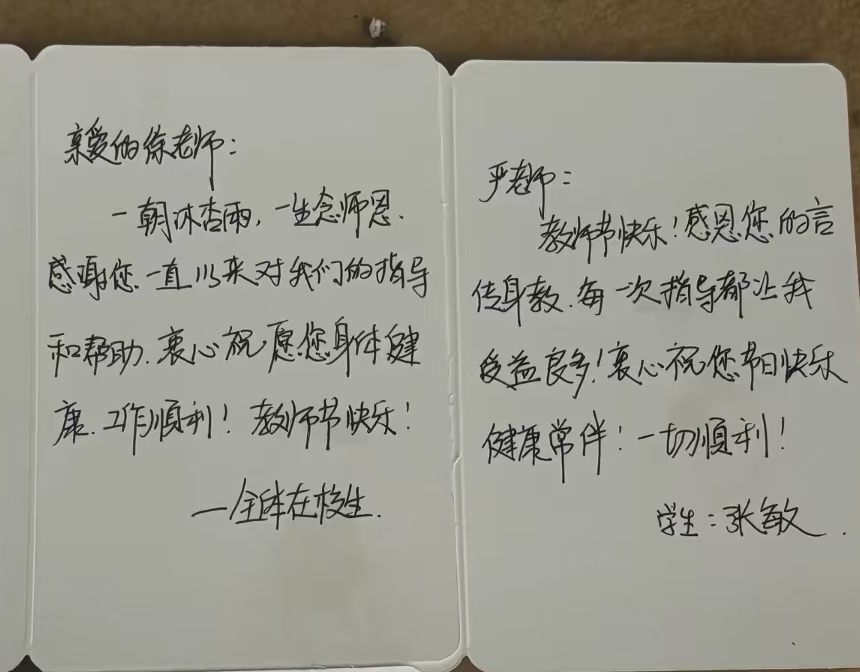 亲爱的徐老师：
一朝沐杏雨，一生念师恩.
感谢您一直以来对我们的指导
和帮助.衷心祝愿您身体健
康.工作順利！教师节快乐！
—全体在校生.
严老师：
教师节快乐！感恩您的言
传身教.每一次指导都让我
受益良多！衷心祝您节日快乐
健康常伴！一切順利！
学生：张敏.